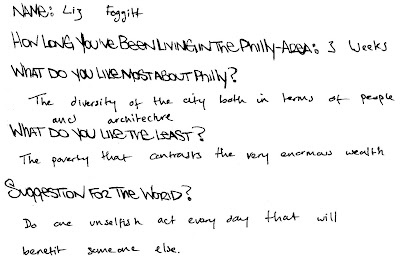 NAME: Liz Foggitt
HOW LONG YOU'VE BEEN LIVING IN THE PHILLY-AREA: 3 weeks
WHAT DO YOU LIKE MOST ABOUT PHILLY?
The diversity of the city both in terms of people
and architecture
WHAT DO YOU LIKE THE LEAST?
The poverty that contrasts the very enormous wealth
SUGGESTION FOR THE WORLD?
Do one unselfish act every day that will
benefit someone else.